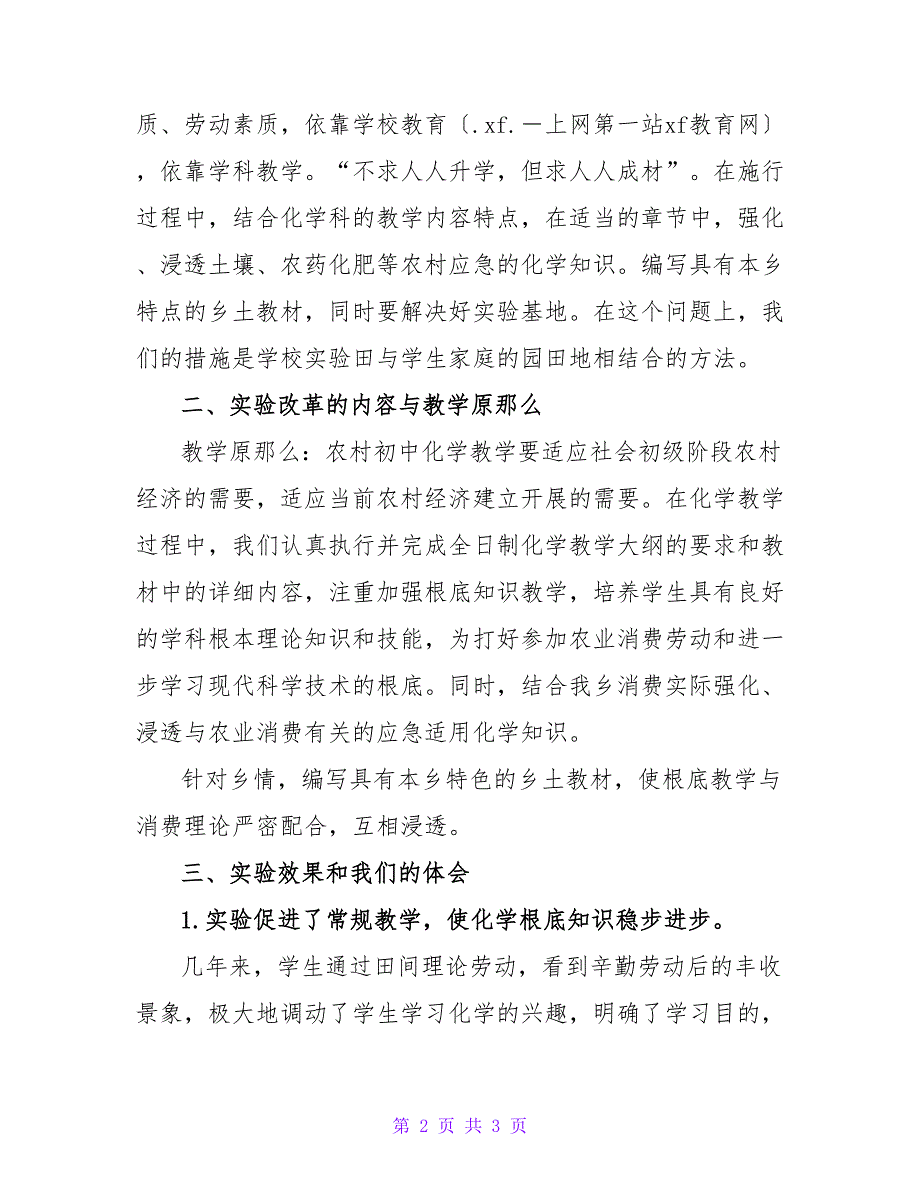 质、劳动素质，依靠学校教育〔.xf.－上网第一站xf教育网〕
，依靠学科教学。“不求人人升学，但求人人成材”。在施行
过程中，结合化学科的教学内容特点，在适当的章节中，强化
、浸透土壤、农药化肥等农村应急的化学知识。编写具有本乡
特点的乡土教材，同时要解决好实验基地。在这个问题上，我
们的措施是学校实验田与学生家庭的园田地相结合的方法。
二、实验改革的内容与教学原那么
教学原那么：农村初中化学教学要适应社会初级阶段农村
经济的需要，适应当前农村经济建立开展的需要。在化学教学
过程中，我们认真执行并完成全日制化学教学大纲的要求和教
材中的详细内容，注重加强根底知识教学，培养学生具有良好
的学科根本理论知识和技能，为打好参加农业消费劳动和进一
步学习现代科学技术的根底。同时，结合我乡消费实际强化、
浸透与农业消费有关的应急适用化学知识。
针对乡情，编写具有本乡特色的乡土教材，使根底教学与
消费理论严密配合，互相浸透。
三、实验效果和我们的体会
1.实验促进了常规教学，使化学根底知识稳步进步。
几年来，学生通过田间理论劳动，看到辛勤劳动后的丰收
景象，极大地调动了学生学习化学的兴趣，明确了学习目的，
第 2 页 共 3 页